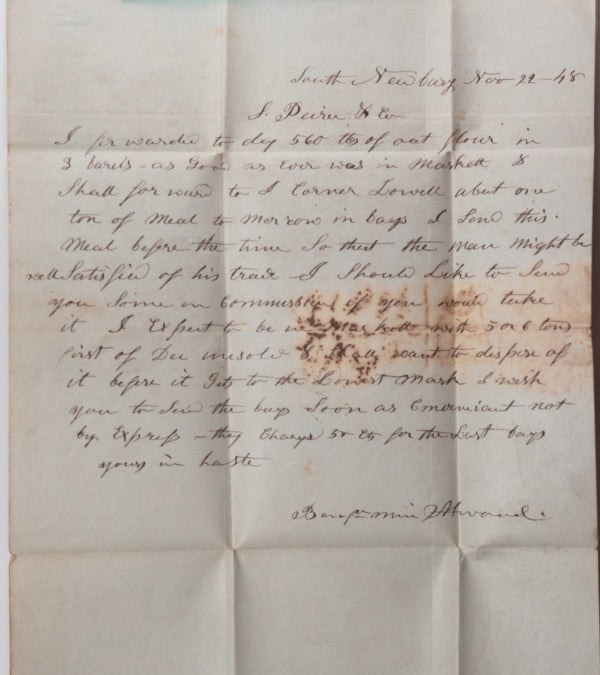 South Newbury Nov 22 - 48
S. Peirce & Co
I forwarded to day 560 lbs of oat flour in
3 barels - as Good as Ever was in Markett &
Shall forward to I Corner Lowell abut one
ton of Meal to Morrow in bags I Send this
Meal before the time So that the Man Might be
well Satisfied of his trade - I Should Like to Send
you Some on Commission if you would take
it I Expect to be in Markett with 5 or 6 tons
first of Dec unsold & Shall want to dispose of
it before it Gets to the Lowest Mark I wish
you to Send the bags Soon as Conveniant not
by Express - they Charge 50 cts for the Last bags
yours in haste
Benjamin Atwood